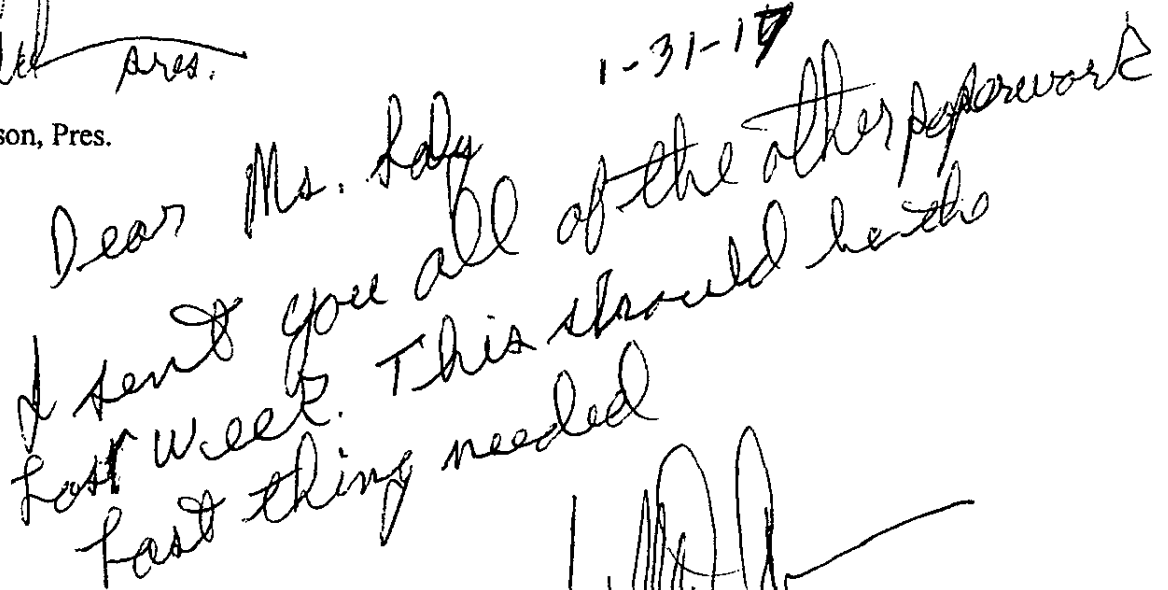 pres.
1-31-17
son, Pres.
Dear Ms.
I sent you all of the other paperwork
Last week. This should be the
Last thing needed